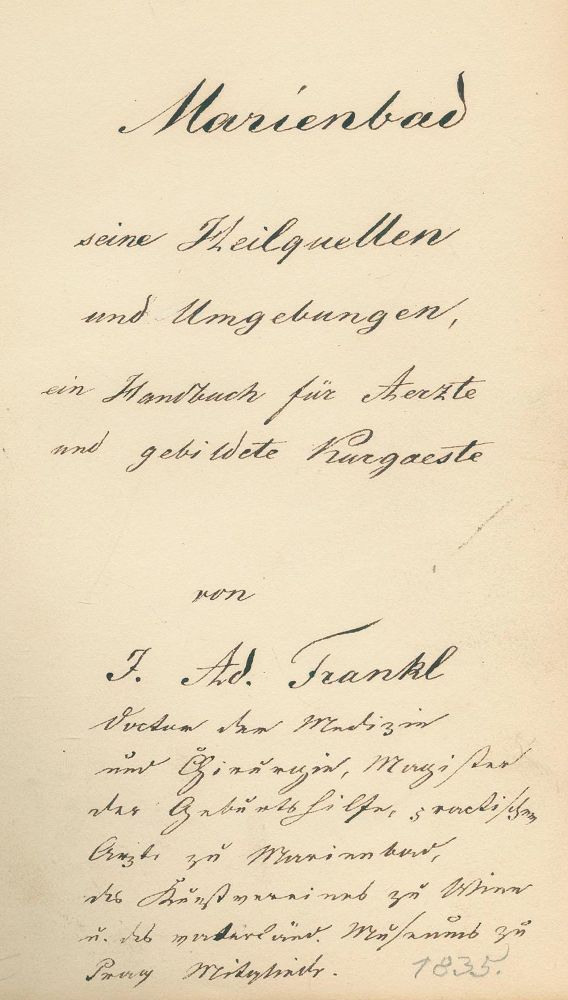 Marienbad
seine Heilquellen
und Umgebungen,
ein Handbuch für Aerzte
und gebildete Kurgaeste
von
J. Ad. Frankl
Doctor der Medizin
und Chirurgie, Magister
der Geburtshilfe, practischem
Arzte zu Marienbad,
des Kunstvereines zu Wien
u. des vaterländ. Museums zu
Prag Mitgliede.
1835.